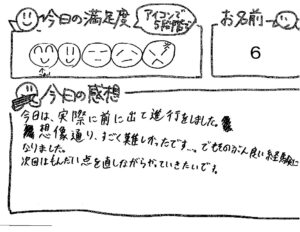 今日の満足度
アイコンで
5段階で
お名前
6
今日の感想
今日は、実際に前に出て進行をしました。
想像通り、すごく難しかったです…。でもものすごく良い経験に
なりました。
次回はもんだい点を直しながらやっていきたいです。